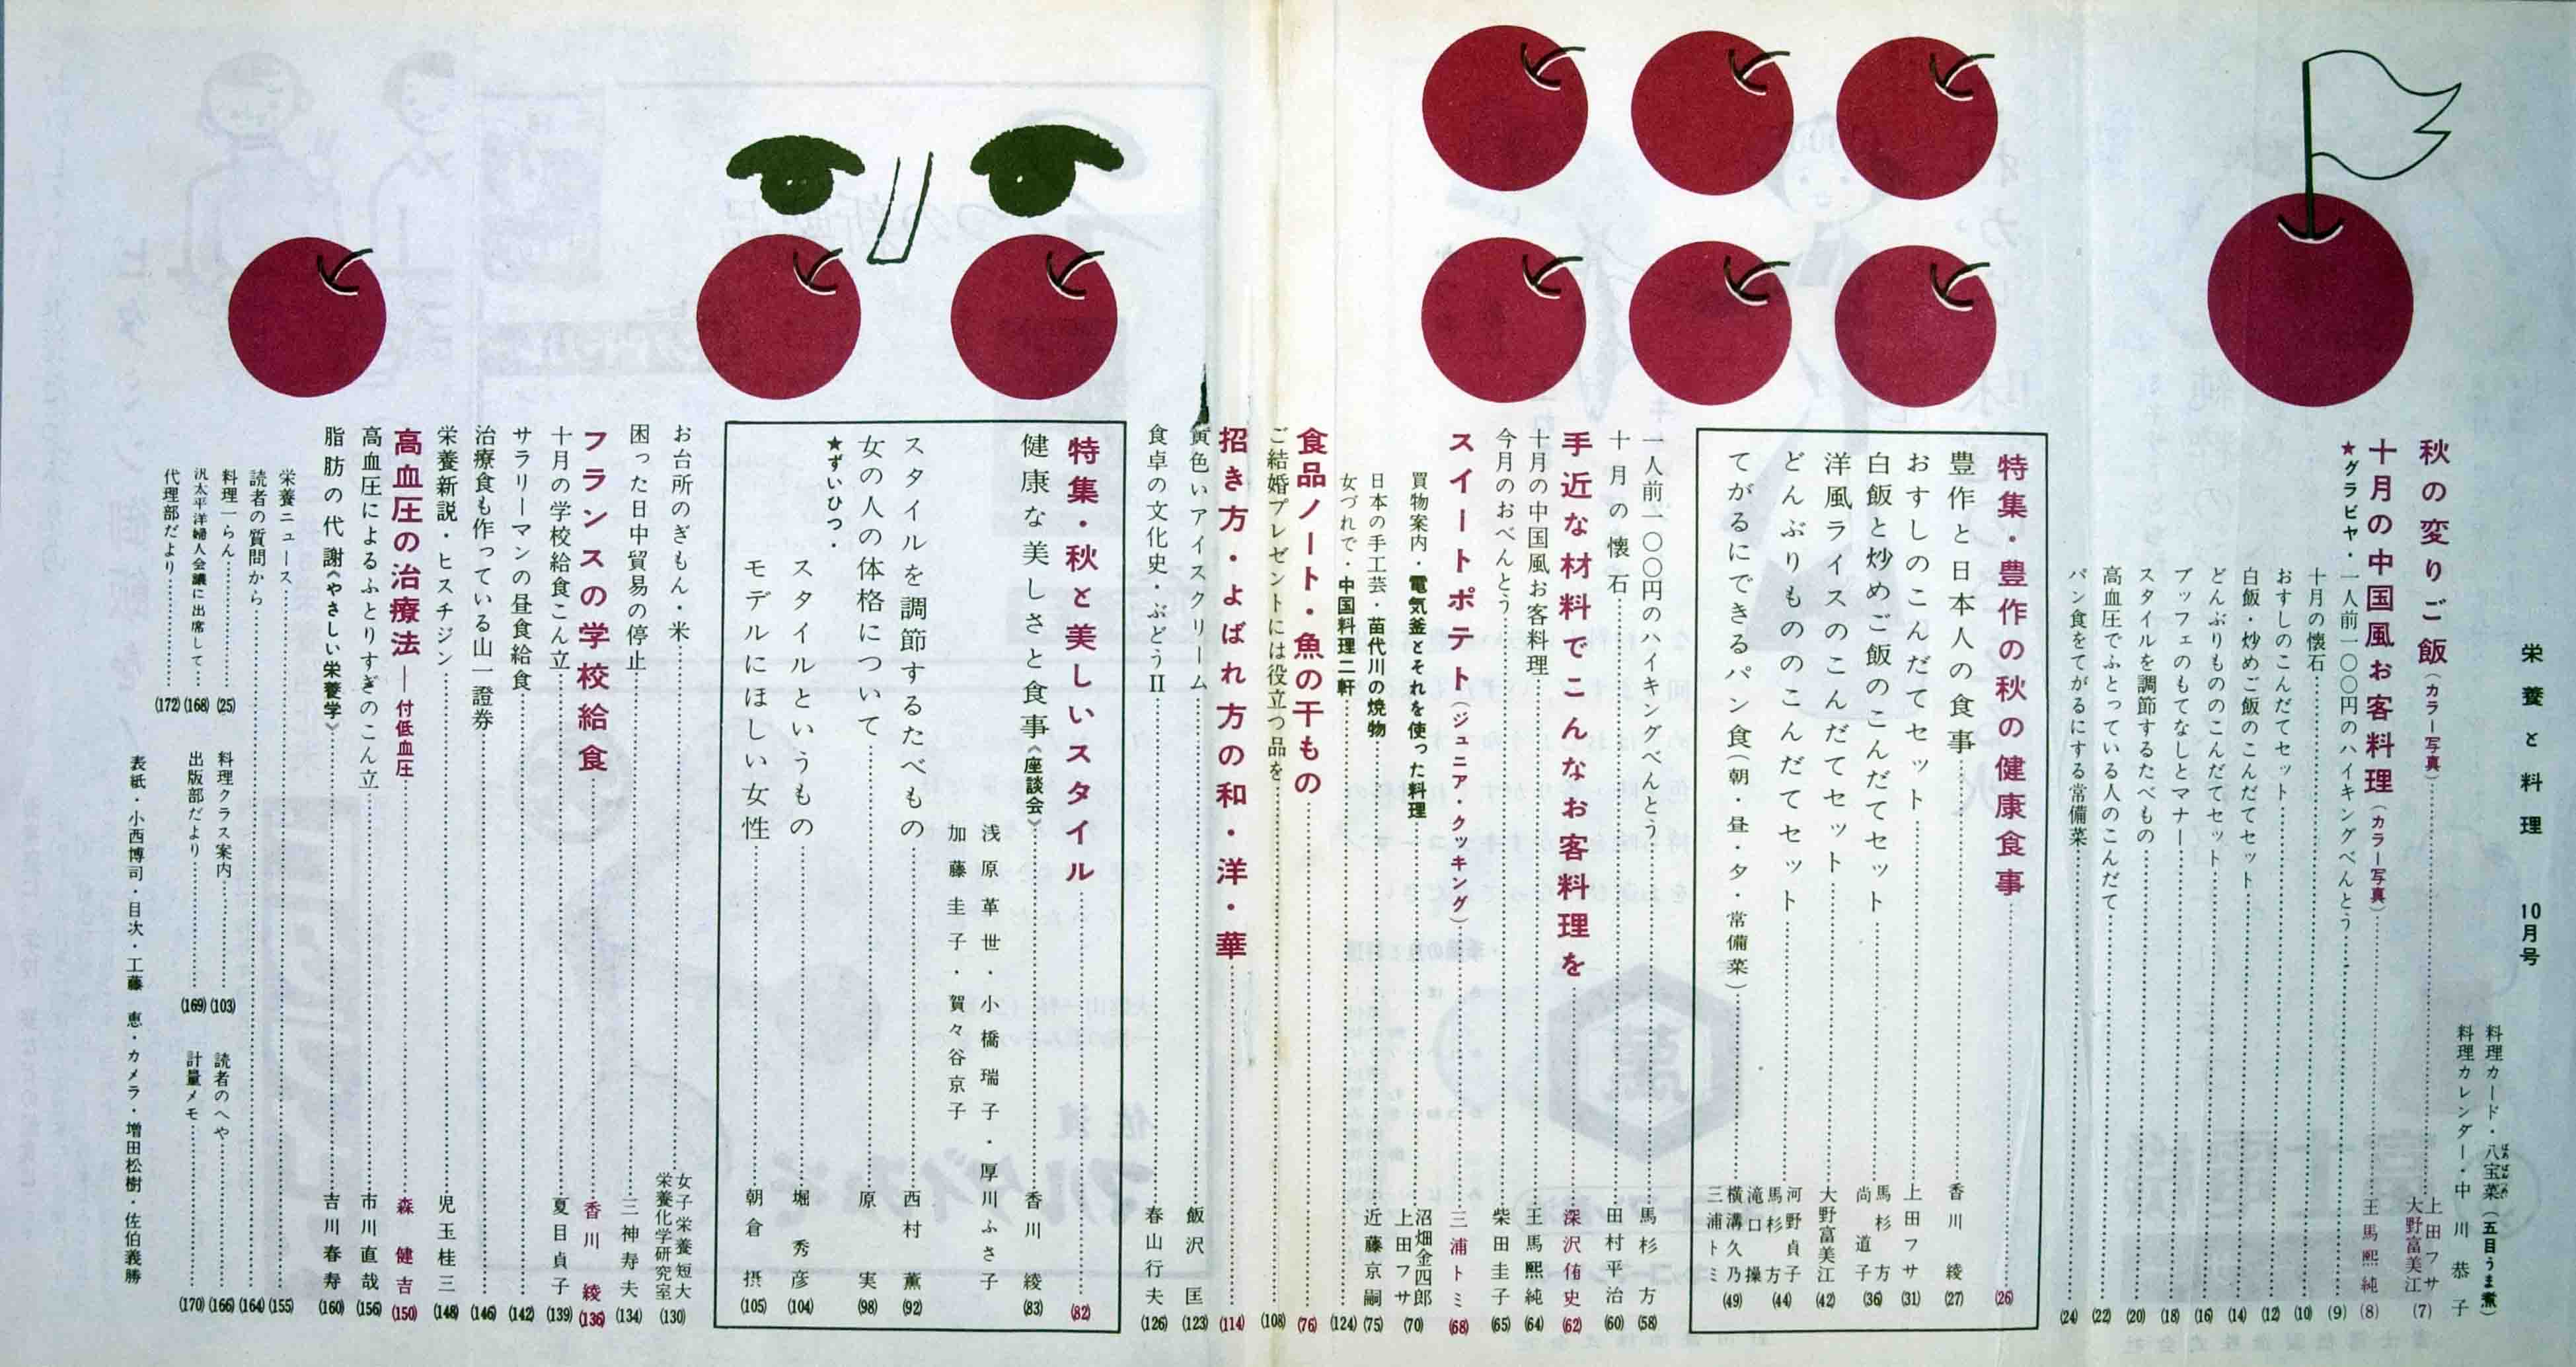 栄養と料理 10月号
料理カード・八宝菜(五目うま煮)
料理カレンダー・中川恭子
秋の変りご飯(カラー写真)……上田フサ 大野富美江(7)
十月の中国風お客料理(カラー写真)……王馬熙純(8)
★グラビヤ・一人前一〇〇円のハイキングべんとう……(9)
十月の懐石……(10)
おすしのこんだてセット……(12)
白飯・炒めご飯のこんだてセット……(14)
どんぶりもののこんだてセット……(16)
ブッフェのもてなしとマナー……(18)
スタイルを調節するたべもの……(20)
高血圧でふとっている人のこんだて……(22)
パン食をてがるにする常備菜……(24)
特集・豊作の秋の健康食事……(26)
豊作と日本人の食事……香川綾(27)
おすしのこんだてセット……上田フサ(31)
白飯と炒めご飯のこんだてセット……馬杉方 尚道子(36)
洋風ライスのこんだてセット……大野富美江(42)
どんぶりもののこんだてセット……河野貞子 馬杉方(44)
てがるにできるパン食(朝・昼・夕・常備菜)……滝口操 横溝久乃 三浦トミ(49)
一人前一〇〇円のハイキングべんとう……馬杉方(58)
十月の懐石……田村平治(60)
手近な材料でこんなお客料理を……深沢侑史(62)
十月の中国風お客料理……王馬熙純(64)
今月のおべんとう……柴田圭子(65)
スイートポテト(ジュニア・クッキング)……三浦トミ(68)
買物案内・電気釜とそれを使った料理……沼畑金四郎 上田フサ(70)
日本の手工芸・苗代川の焼物……近藤京嗣(75)
女づれで・中国料理二軒……(124)
食品ノート・魚の干もの……(76)
ご結婚プレゼントには役立つ品を……(108)
招き方・よばれ方の和・洋・華……(114)
黄色いアイスクリーム……飯沢匡(123)
食卓の文化史・ぶどうⅡ……春山行夫(126)
特集・秋と美しいスタイル……(82)
健康な美しさと食事《座談会》……香川綾(83)
浅原革世・小橋瑞子・厚川ふさ子
加藤圭子・賀々谷京子
スタイルを調節するたべもの……西村薫(92)
女の人の体格について……原実(98)
★ずいひつ・
スタイルというもの……堀秀彦(104)
モデルにほしい女性……朝倉摂(105)
お台所のぎもん・米……女子栄養短大 栄養化学研究室(130)
困った日中貿易の停止……三神寿夫(134)
フランスの学校給食……香川綾(136)
十月の学校給食こん立……夏目貞子(139)
サラリーマンの昼食給食……(142)
治療食も作っている山一證券……(146)
栄養新説・ヒスチジン……児玉桂三(148)
高血圧の治療法―付低血圧……森健吉(150)
高血圧によるふとりすぎのこん立……市川直哉(156)
脂肪の代謝《やさしい栄養学》……吉川春寿(160)
栄養ニュース……(155)
読者の質問から……(164)
料理一らん……(25)
料理クラス案内……(103)
読者のへや……(166)
汎太平洋婦人会議に出席して……(168)
出版部だより……(169)
計量メモ……(170)
代理部だより……(172)
表紙・小西博司・目次・工藤 恵・カメラ・増田松樹・佐伯義勝